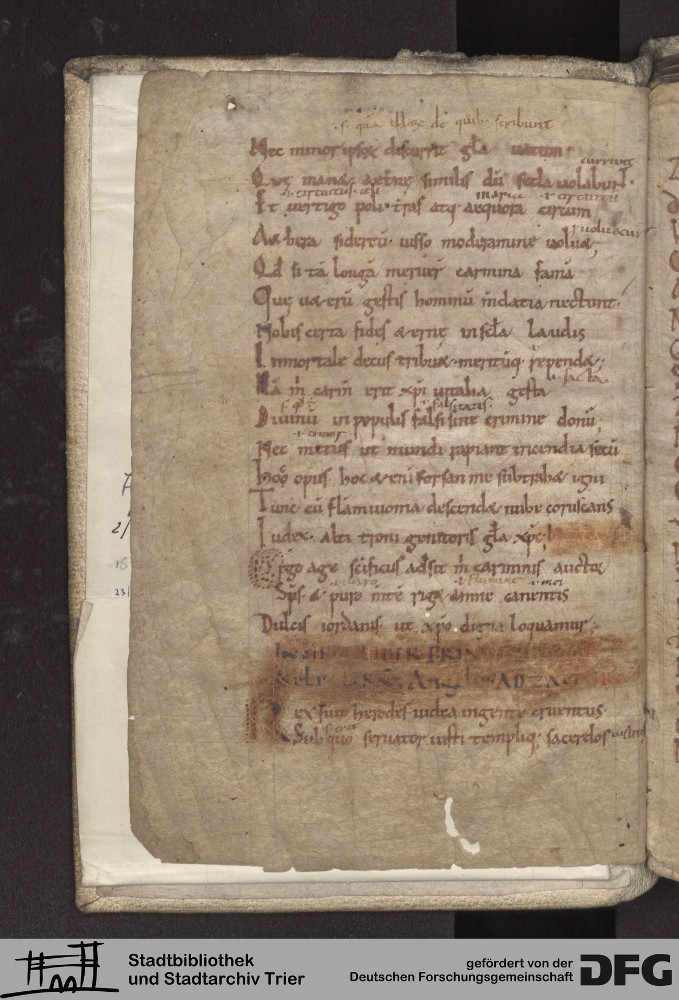 .s. qua illoꝝ de quib; scribunt
Nec minor ipsoꝝ discurrit gl̄a uatum
currunt
Quę manet aeternę similis dū secla uolabun͞t.
maria
Et uertigo poli t̄ras atq; aequora circum
Aethera sidereū iusso moderamine uoluet;
Qd̄ si tā longā meruer̄ carmina famā
Quę ueterū gestis hominū mendatia nectunt
Nobis certa fides aeternę in sc̄la laudis
Inmortale decus tribuet meritūq; rependet;
facta
Nā m̄ carm̄ erit xp̄i uitalia gesta
falsitatis
Diuinū in populis falsi sine crimine donū;
Nec metus ut mundi rapiant incendia secū
Hoc opus hoc etenī forsan me subtrahet igni
Tunc cū flammiuoma descendet nube coruscans
Iudex alti troni genitoris gl̄a xp̄c
Ergo age sc̄ificus adsit m̄ carminis auctor
Sp̄s & puro m̄tē riget amne canentis
Dulcis iordanis ut xp̄o digna loquamur;
Rex fuit herodes iudea in gente cruentus
Sub quo seruator iusti templiq; sacerdos
Stadtbibliothek
und Stadtarchiv Trier
gefördert von der
Deutschen Forschungsgemeinschaft
DFG